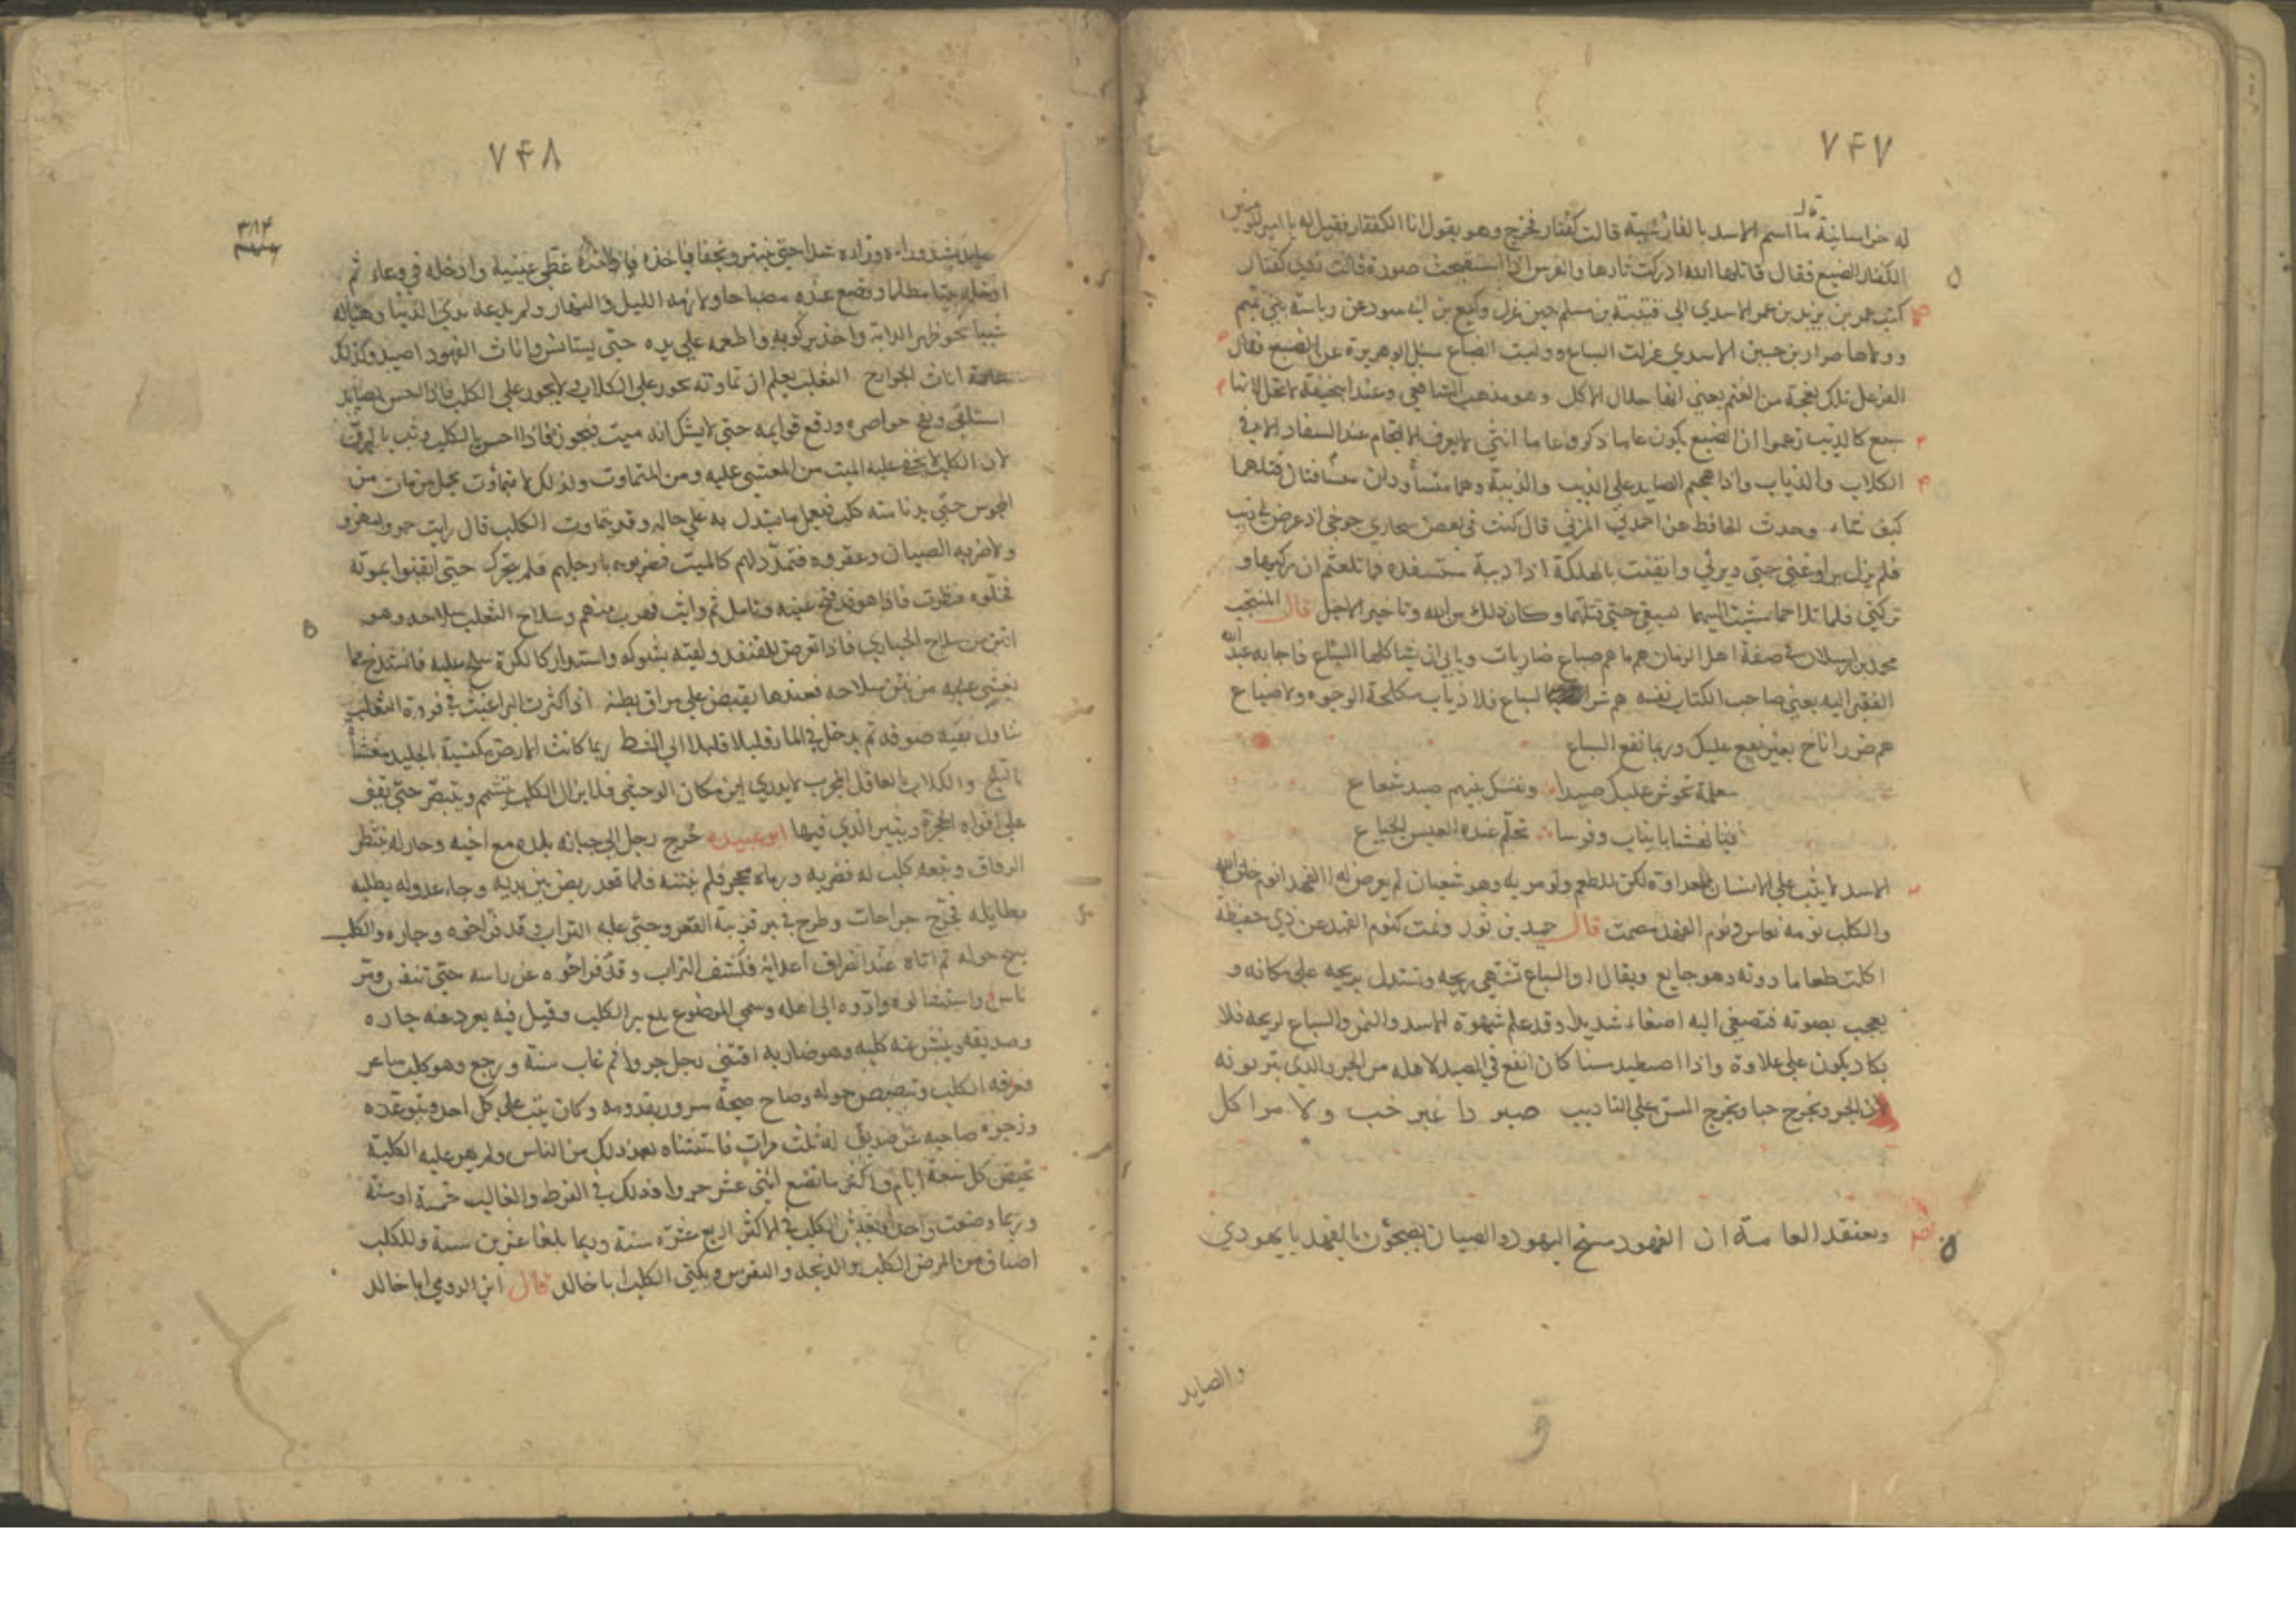 ٧۴٧
له خراسانية ما اسم الاسد بالفارسية قالت كفتار فخرج وهو يقول انا الكفتار فقيل له يا امير
الكفتار الضبع فقال قاتلها الله ادركت ثارها والفرس اذا استقبحت صورة قالت كفتار
كتب عمر بن يزيد بن عمر الاسدي الى قتيبة بن مسلم حين عزل وكيع بن ابي سود عن رياسة بني تميم
وولاها ضرار بن حسين الاسدي عزلت السباع ووليت الضباع سئل ابو هريرة عن الضبع فقال
الفرعل تلك نعجة من الغنم يعني انها حلال الاكل وهو مذهب الشافعي وعند ابي حنيفة لا تحل لانها
سبع كالذيب زعموا ان الضبع يكون عاما ذكرا وعاما انثى لا يعرف الالتحام عند السفاد الا في
الكلاب والذياب واذا هجم الصايد على الذيب والذيبة وهما يتسافدان قتلهما
كيف شاء وحدث الحافظ عن احمد بن المثنى قال كنت في بعض صحاري جوخى اذ عرض لي ذيب
فلم يزل يراوغني حتى دير بي وايقنت بالهلكة اذا ذيبة ستسفده فما تلعثم ان ركبها و
تركني فلما تلاحما مشيت اليهما بسيفي حتى قتلتهما وكان ذلك من الله وتاخير الاجل قال المنتجب
محمد بن ارسلان في صفة اهل الزمان هم ما هم ضباع ضاريات ويابى ان يشاكلها السباع فاجابه عبد الله
الفقير اليه يعني صاحب الكتاب نفسه هم شر السباع فلا ذياب مكلحة الوجوه ولا ضباع
هم ضرر اناخ بغير نفع عليك وربما نفع السباع
معلمة تحوش عليك صيدا ونفسك بينهم صيد شعاع
الاسد لا يثب على الانسان للعداوة لكن للطعم ولو مر به وهو شبعان لم يعرض له الفهد انوم خلق الله
والكلب نومه نعاس ونوم الفهد مصمت قال حميد بن ثور ونمت كنوم الفهد عن ذي حفيظة
اكلت طعاما دونه وهو جايع ويقال ان السباع تشتهي ريحه وتستدل بريحه على مكانه و
يعجب بصوته فتصغي اليه اصغاء شديدا وقد علم شهوة الاسد والنمر والسباع لريحه فلا
يكاد يكون على علاوة واذا اصطيد مسنا كان انفع في الصيد لاهله من الجرو الذي يتربونه
لان الجرو يخرج خبا ويخرج المسن على التاديب صيودا غير خب ولا مواكل
ويعتقد العامة ان الفهود مسخ اليهود والصبيان يصيحون بالفهد يا يهودي
والصايد
٧۴٨
٣١۴
غطى عينيه وادخله في وعاء ثم
ادخله بيتا مظلما ووضع عنده مصباحا ولازمه الليل والنهار ولم يدعه يرى الدنيا وهيا له
شيئا نحو ظهر الدابة واخذ يركبه واطعمه على يده حتى يستانس واناث الفهود اصيد وكذلك
عامة اناث الجوارح الثعلب يعلم ان تماوته يجوز على الكلاب ولا يجوز على الكلب فاذا احس بصايد
استلقى ونفخ خواصره ورفع قوايمه حتى لا يشك انه ميت فيجوز فاذا احس بالكلب وثب بالبرق
لان الكلب لا يخفى عليه الميت من المغشي عليه ومن المتماوت ولذلك لا يحمل من مات من
المجوس حتى يدنا منه كلب فيعمل ما يستدل به على حاله وقد يتماوت الكلب قال رايت جرو
ولاضربه الصبيان وعقروه فتمدد لهم كالميت فضربوه بارجلهم فلم يتحرك حتى ايقنوا بموته
فخلوه فنظرت فاذا هو قد فتح عينيه وتامل ثم واثب فهرب منهم وسلاح الثعلب سلاحه وهو
انتن من سلاح الحبارى فاذا تعرض للقنفذ ولقيه بشوكه واستدار كالكرة سلح عليه فانسدح مما
يغشى عليه من نتن سلاحه فعندها يقبض على مراق بطنه اذا كثرت البراغيث في فروة الثعلب
تناول بفيه صوفه ثم يدخل في الماء قليلا قليلا الى الشط ربما كانت الارض مكتسية بالجليد مغشاة
بالثلج والكلاب بالعاقل المجرب لا يدري اين مكان الوحشي فلا يزال الكلب يتشمم ويتبصر حتى يقف
على افواه الحجرة ويثير الذي فيها ابو عبيده خرج رجل الى جبانة بلده مع اخيه وجار له ينتظر
الرفاق وتبعه كلب له فضربه ورماه بحجر فلم ينته فلما قعد ربض بين يديه وجاء عدو له يطلبه
بطايلة فجرح جراحات وطرح في بير قريبة القعر وحثي عليه التراب وقد فر اخوه وجاره والكلب
ينبح حوله ثم اتاه عند انصراف اعدائه فكشف التراب وقد فر اخوه عن راسه حتى تنفس ومر
ناس واستشالوه وادوه الى اهله وسمي الموضع بير الكلب وقيل فيه يعرد عنه جاره
وصديقه وينبش عنه كلبه وهو ضاربه اقتنى رجل جروا ثم غاب سنة ورجع وهو كلب
فعرفه الكلب وتبصبص حوله وصاح صيحة سرور بقدومه وكان يثب على كل احد
وزجره صاحبه عن صديق له ثلث مرات فاستثناه بعد ذلك من الناس ولم يهر عليه الكلبة
تحيض كل سبعة ايام واكثر ما تضع اثني عشر جروا وذلك في الفرط والغالب خمسة او ستة
وربما وضعت واحدا ويعيش الكلب في الاكثر اربع عشرة سنة وربما بلغا عشرين سنة وللكلب
اصناف من المرض الكلب والذبحة والنقرس ويكنى الكلب ابا خالد قال ابن الرومي ابا خالد